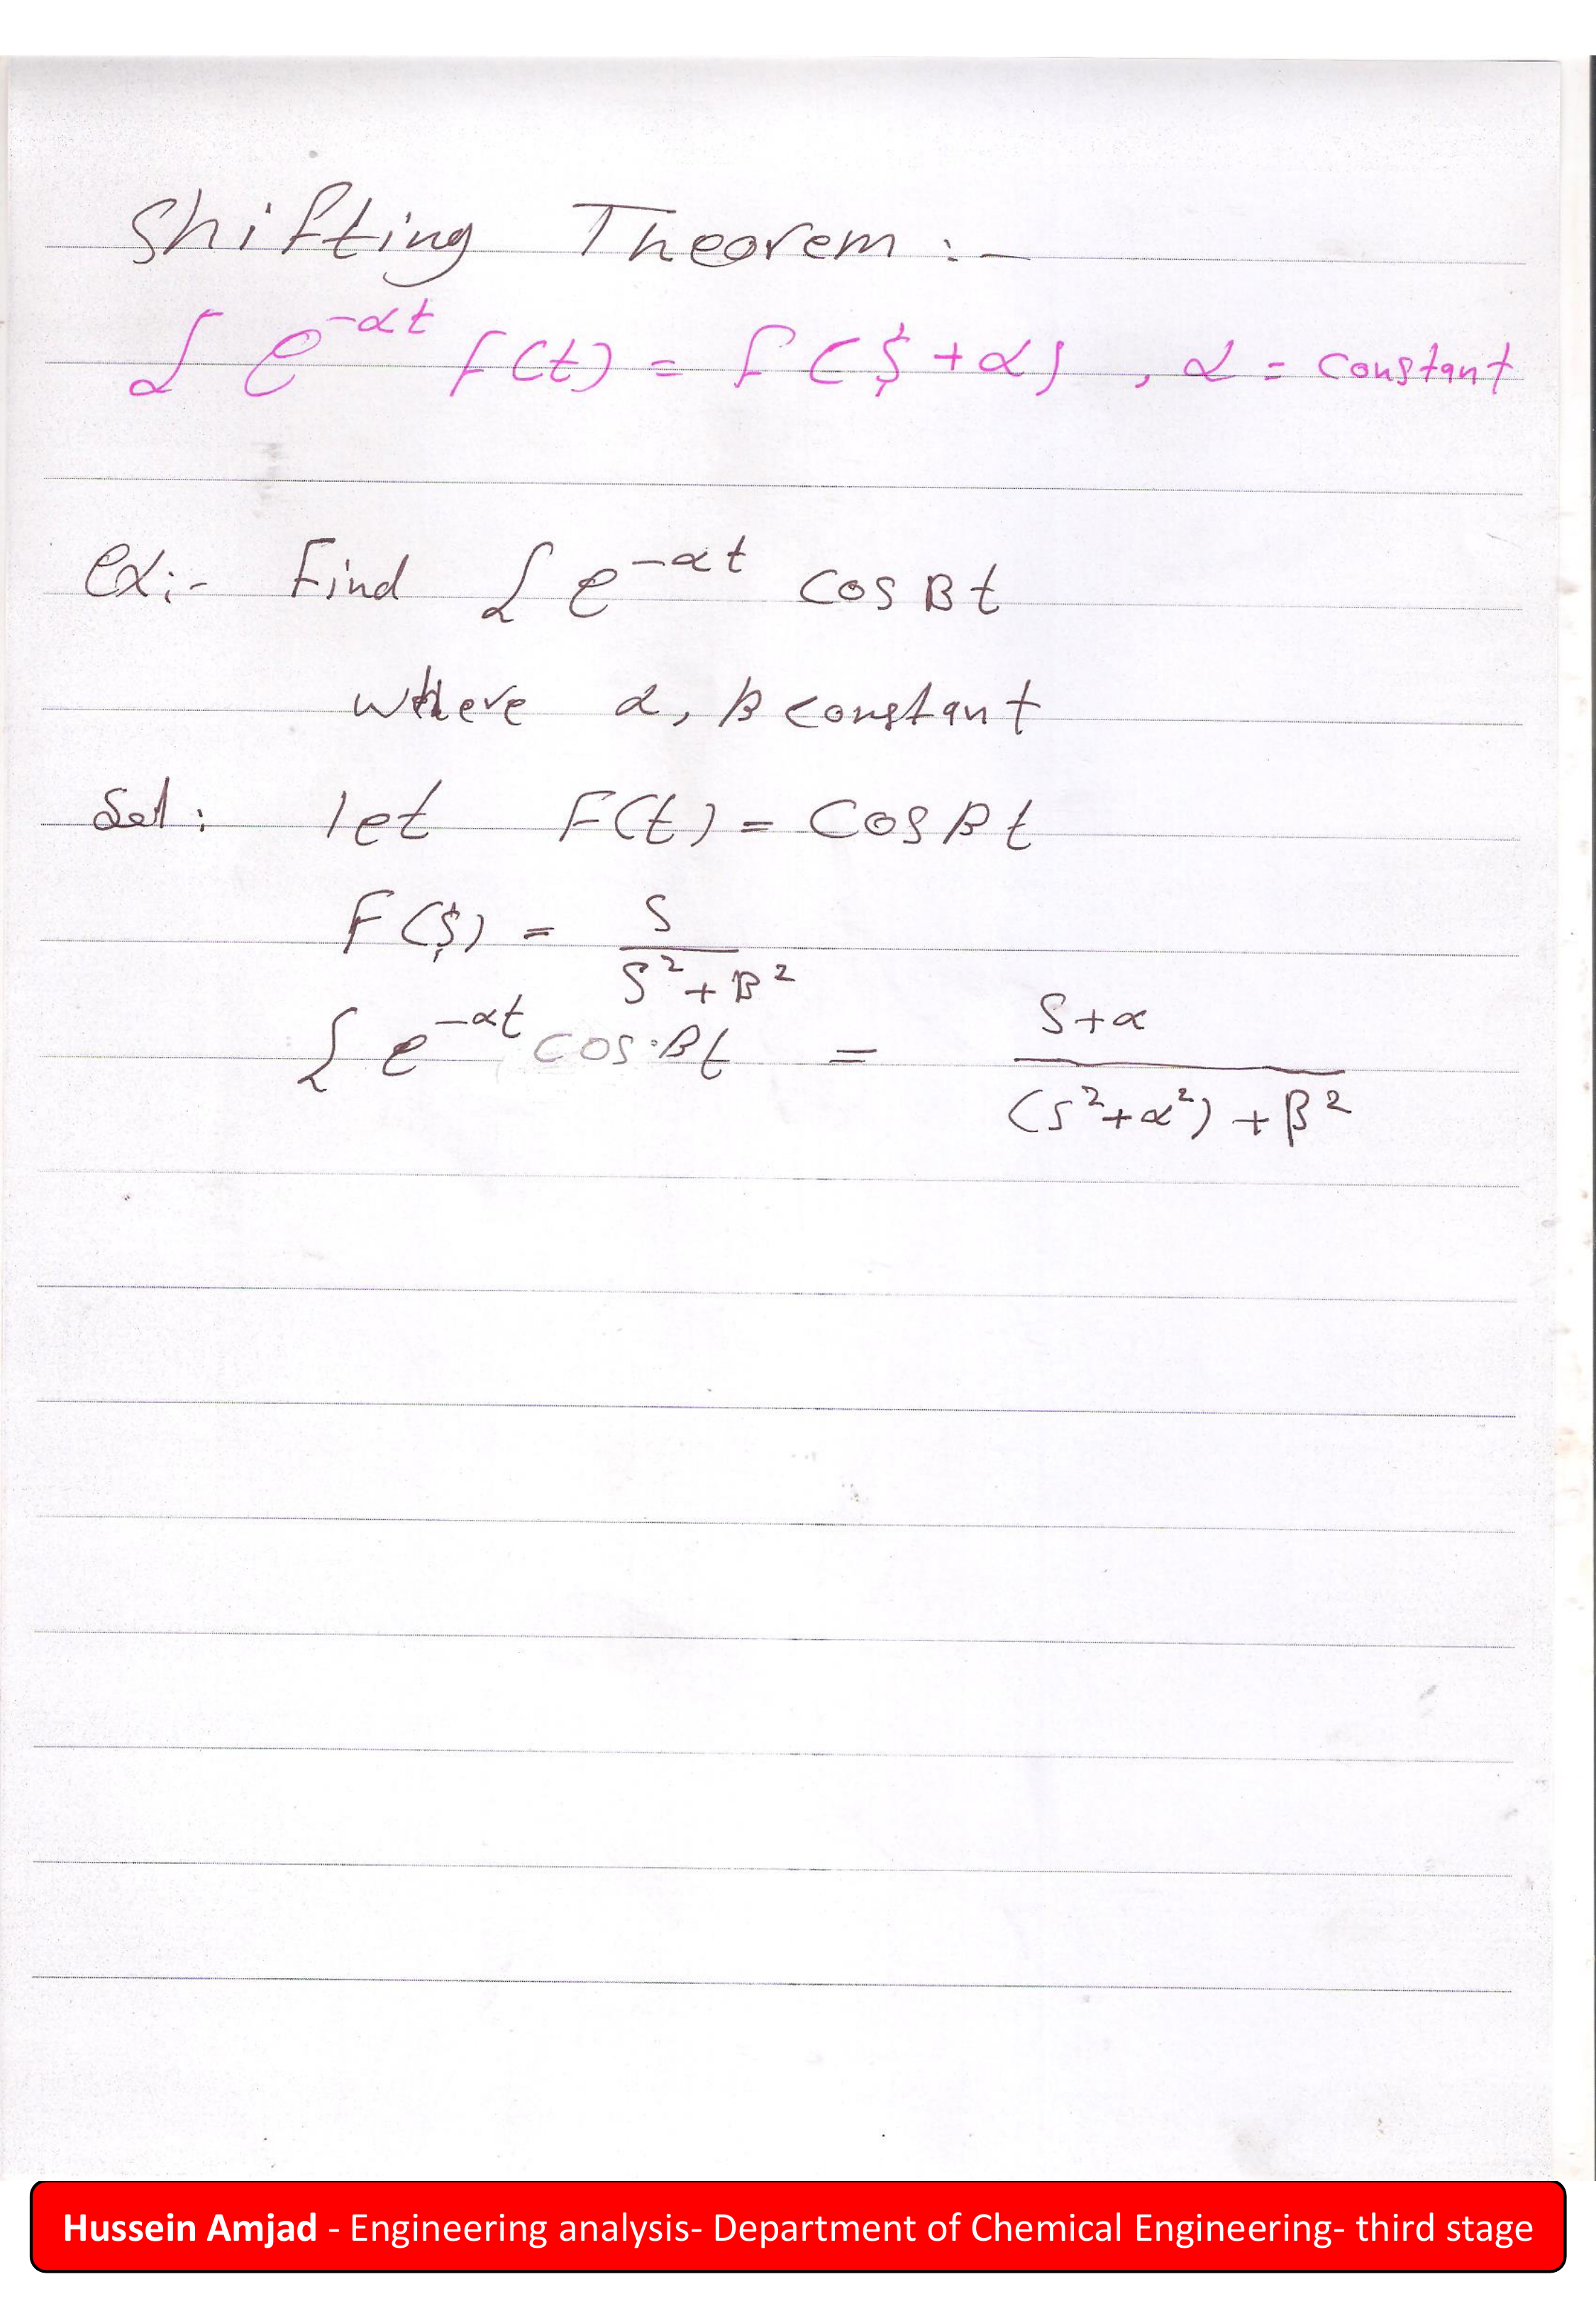 Shifting Theorem :-
ℒ e^{-αt} F(t) = F($+α) , α = constant
ex:- Find ℒ e^{-αt} cos βt
where α, β constant
Sol: let F(t) = Cos βt
F($) = S / (S² + β²)
ℒ e^{-αt} cos βt = (S+α) / ((S²+α²) + β²)
Hussein Amjad - Engineering analysis- Department of Chemical Engineering- third stage